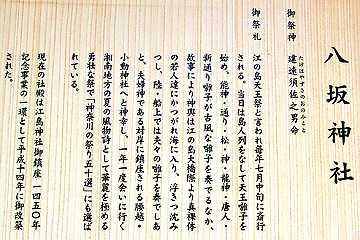 八坂神社
御祭神　建速須佐之男命
たけはやすさのおのみこと
御祭礼
江の島天王祭と言われ毎年七月中旬に斎行
される。当日は島人列をなして天王囃子を
始め、龍神・通り・松・神・龍神・唐人・
新通り囃子が古風な雅子を奏でるなか、
故事により神輿は江の島大橋際より真裸体
の若人達にかつがれ海に入り、浮きつ沈み
つし、陸・船上では夫々の囃子を奏でしあ
と、夫婦神である対岸に鎮座される腰越・
小動神社へと神幸し、一年一度会いに行く
湘南地方の夏の風物詩として華麗を極める
勇壮な祭で「神奈川の祭り五十選」にも選ば
れている。
現在の社殿は江島神社御鎮座一四五〇年
記念事業の一環として平成十四年に御改築
された。